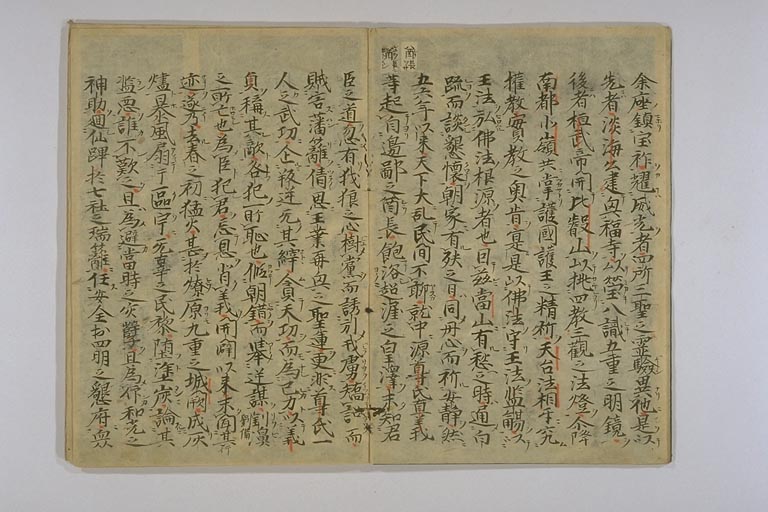 余座鎮宝祚耀威光者四所三聖之霊驗異他是以
先者淡海公建興福寺以瑩八識五重之明鏡
後者桓武帝開比叡山以挑四教三観之法燈尒降
南都北嶺共掌護國護王之精祈天台法相互究
権教實教之奥旨寔是以佛法守王法濫觴以
王法弘佛法根源者也因茲當山有愁之時通白
疏而談懇懐朝家有殃之日同丹心而祈安静然
五六年以来天下大乱民間不聊就中源尊氏直義
等起自邊鄙之酋長飽浴超涯之皇澤未知君
臣之道忽有犲狼之心樹黨而誘引戎虜矯詔而
賊害藩籬倩思王業再興之聖運更非尊氏一
人之武功企叛逆无其辞貪天功而為己力以義
貞稱其敵咎犯所恥也仮朝錯而挙逆謀劉濞
之所亡也為臣犯君忘恩背義開闢以来未聞其行
迹遂去春之初猛火甚於燎原九重之城闕成灰
燼暴風扇于區宇无辜之民黎堕塗炭論其
濫悪誰不歎之且為避當時之災孽且為仰和光之
神助廻仙蹕於七社之瑞籬任安全於四明之懇府衆